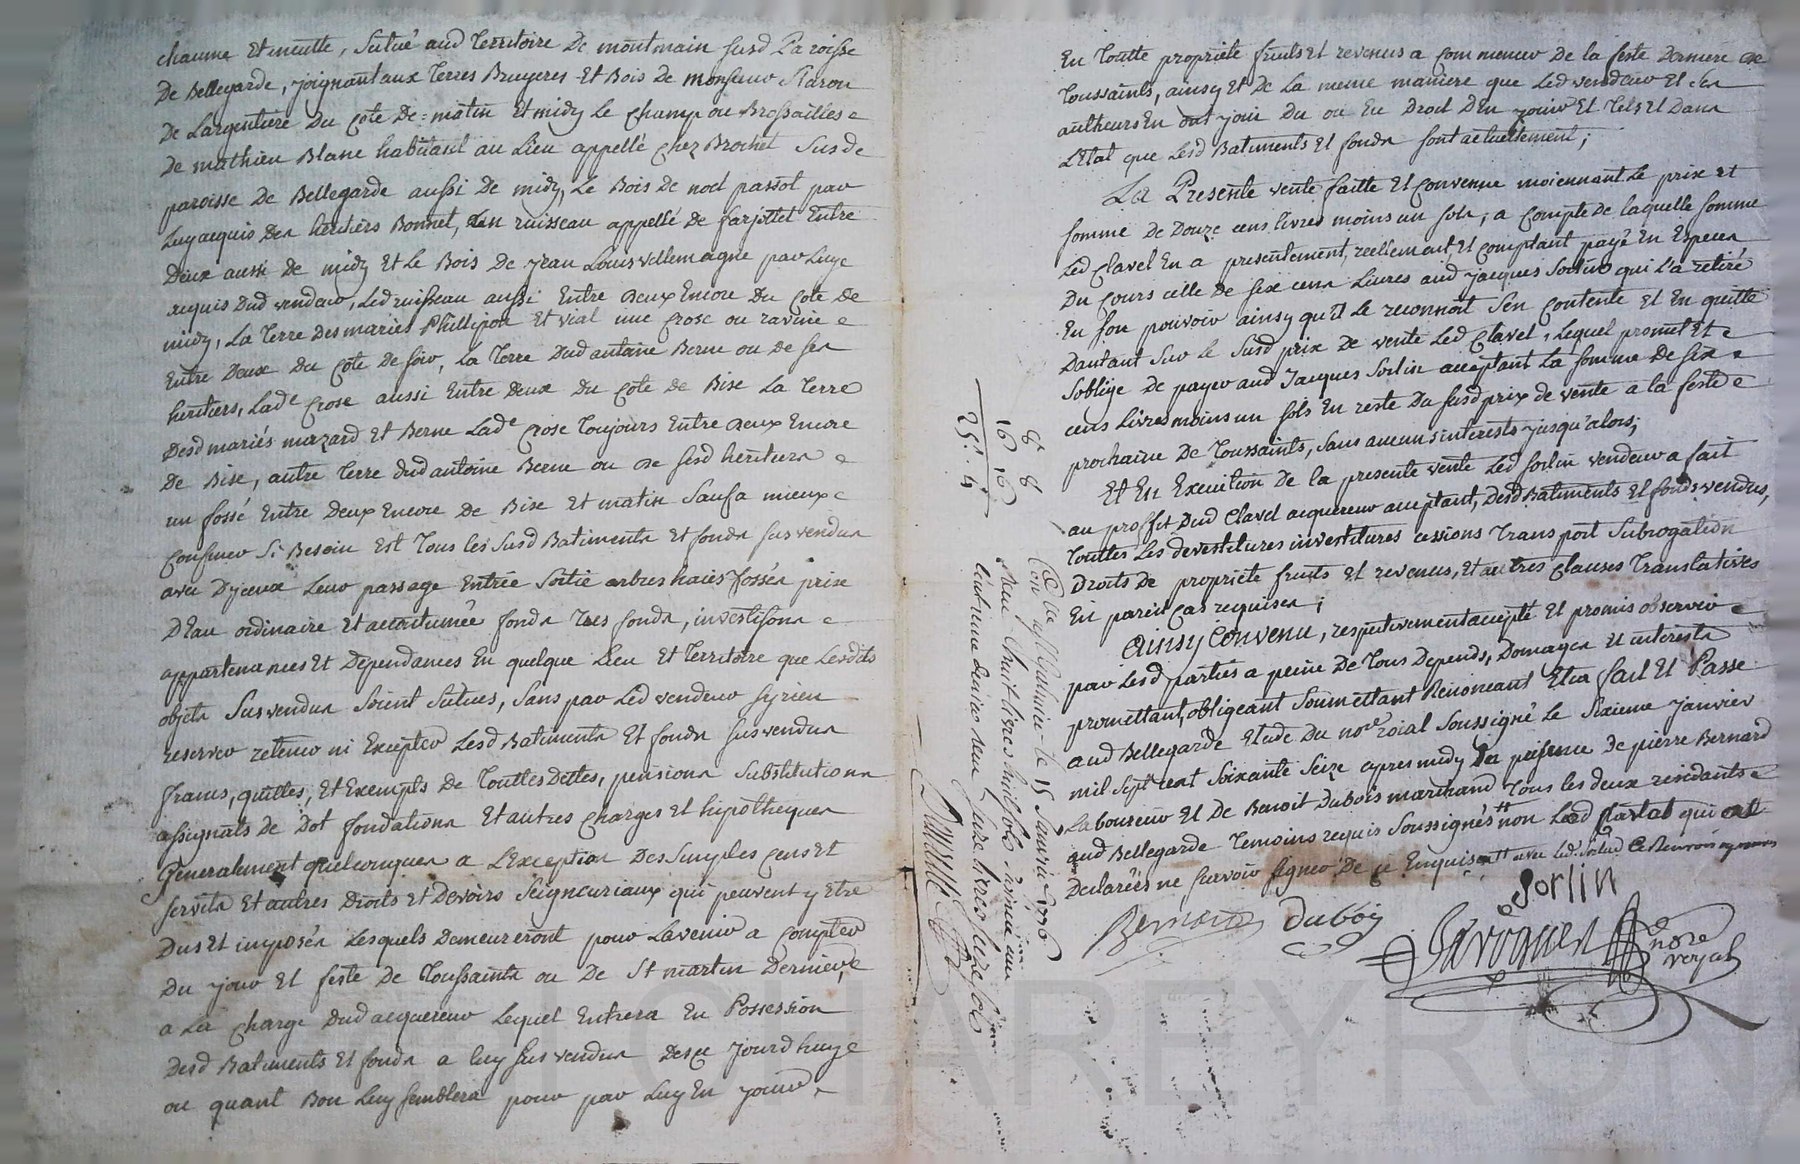 chaume Et meutte, Situé aud Territoire De montmain susd Paroisse
De Bellegarde, joignant aux Terres Bruyeres Et Bois De monsieur
De Largentiere Du Coté De matin Et midy Le Champ ou Brossailles
De mathieu Blanc habitant au Lieu appellé chez Brochet Susde
paroisse De Bellegarde aussi De midy, Le Bois De noel passot par
Luy acquis Des heritiers Bonnet, Un ruisseau appellé De farjottet Entre
Deux aussi De midy Et Le Bois De Jean Louis vellemagne par Luy
acquis Dud vendeur, Led ruisseau aussi Entre Deux Encore Du Cote De
midy, La Terre Des mariés Phillipon Et vial une Crose ou ravine
Entre Deux Du Coté De soir, La Terre Dud antoine Berne ou De ses
heritiers, Lade Crose aussi Entre Deux Du Cote De Bise La Terre
Desd mariés mazard Et Berne Lade Crose Toujours Entre Deux Encore
De Bise, autre Terre Dud antoine Berne ou De sesd heritiers
un fossé Entre Deux Encore De Bise Et matin Sauf a mieux
Confiner Si Besoin Est Tous les Susd Batiments Et fonds sus vendus
avec D'Iceux Leur passage Entrée Sortie arbres haies fossés prise
D'Eau ordinaire Et accoutumée fonds Tres fonds, investisons
appartenances Et Dependances En quelque Lieu Et Territoire que Lesdits
objets Susvendus Soient Situés, Sans par Led vendeur s'y rien
reserver retenir ni Excepter Lesd Batiments Et fonds susvendus
francs, quittes, Et Exempts de Touttes Dettes, pensions Substitutions
assignats De Dot fondations Et autres Charges Et hipotheques
Generalment quelconques a L'Exception Des Simples Cens Et
servits Et autres Droits Et Devoirs Seigneuriaux qui peuvent y Etre
Dus Et imposés Lesquels Demeureront pour L'avenir a Compter
Du jour Et feste De Toussaints ou De St martin Derniere,
a La Charge Dud acquereur Lequel Entrera En Possession
Desd Batiments Et fonds a luy sus vendus Des ce Jourd'huy
ou quant Bon Luy semblera pour par Luy En jouir
En Toutte proprieté fruits Et revenus a Commencer De la feste Derniere De
Toussaints, ainsy Et De La meme maniere que Led vendeur Et ses
autheurs En ont joui Du ou Eu Droit D'En jouir Et Tels Et Dans
L'Etat que Lesd Batiments Et fonds sont actuellement;
La Presente vente faitte Et Convenue moiennant Le prix Et
somme De Douze cens livres moins un sols, a Compte de laquelle somme
Led Clavel En a presentement, reellement, Et Comptant payé En Especes
Du Cours celle De six cens Livres aud Jacques Sorlin qui L'a retiré
En son pouvoir ainsy qu'il Le reconnoit s'En Contente Et En quitte
Dautant Sur Le Susd prix De vente Led Clavel, Lequel promet Et
s'oblige De payer aud Jacques Sorlin acceptant La somme De six
cens Livres moins un sols En reste Du susd prix de vente a la feste
prochaine De Toussaints, Sans aucuns interests jusqu'alors;
Et En Execution De la presente vente Led Sorlin vendeur a fait
au proffit Dud Clavel acquereur acceptant, Desd Batiments Et fonds vendus,
Touttes Les Devestitures investitures cessions Transport Subrogation
Droits De proprieté fruits Et revenus, Et autres Clauses Translatives
En pareil Cas requises;
Ainsy Convenu, respectivement accepté Et promis observer
par Lesd parties a peine De Tous Depends, Domages Et interests
promettant, obligeant Soumettant Renonceant Etca fait Et Passé
aud Bellegarde Etude Du nore roial Soussigné Le Sixieme Janvier
mil Sept cent Soixante Seize apres midy En presence De pierre Bernard
Laboureur Et De Benoit Dubois marchand Tous les deux residants
aud Bellegarde Temoins requis Soussignés non Led Clavel qui a
Declaré ne Scavoir signer De ce Enquis avec Led Sorlin
Sorlin
Bernard Duboy
nore
royal
8 8
16 16
25 4
Con à le 15 Janvier 1776
Reçu huit livres huit sols